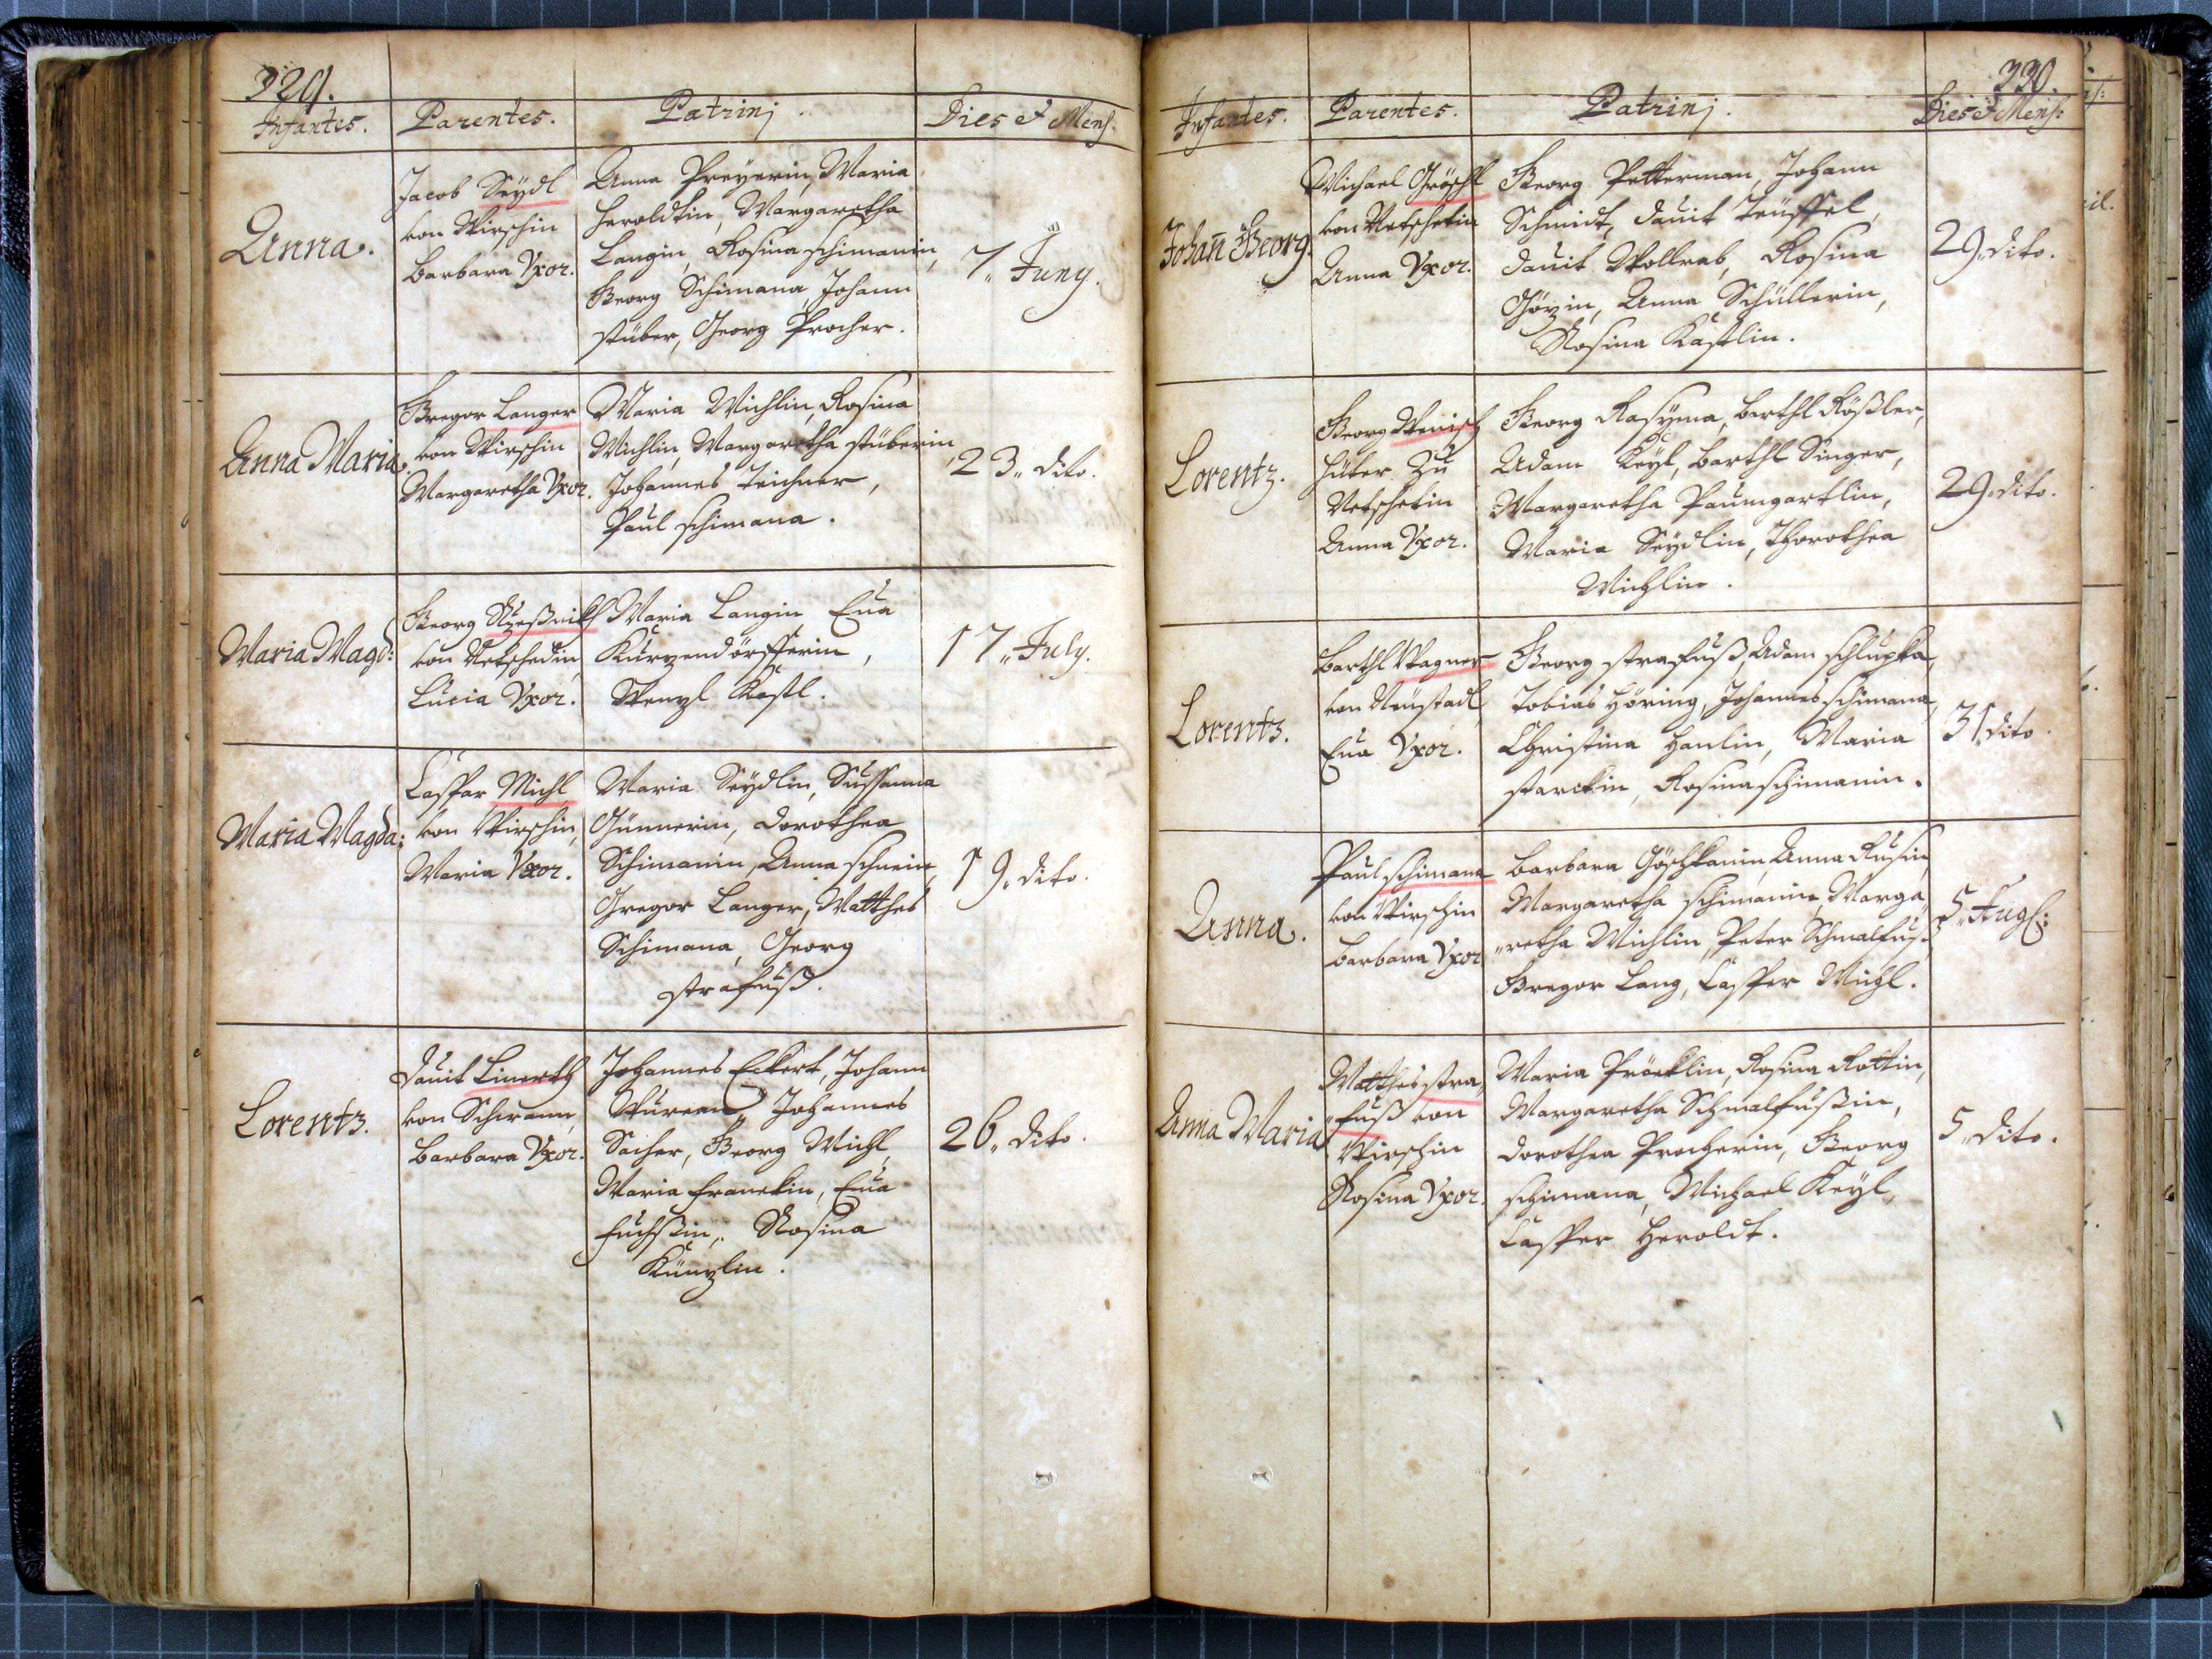 329.
Infantes. Parentes. Patrinj. Dies et Mens:
Anna.
Jacob Seydl
von Wirschin
Barbara Vxor.
Anna Preyerin, Maria
Heroldtin, Margaretha
Langin, Rosina Schimanin,
Georg Schimana, Johann
Stüber, Georg Procher.
7 Juny.
Anna Maria.
Gregor Langer
von Wirschin
Margaretha Vxor.
Maria Michlin, Rosina
Michlin, Margaretha Stüberin,
Johannes Teichner,
Paul Schimana.
23. dito.
Maria Magd:
Georg
von Netschedin
Lucia Vxor.
Maria Langin, Eua
Kurzendörfferin,
Wenzl Kastl.
17 July.
Maria Magda:
Casspar Michl
von Wirschin,
Maria Vxor.
Maria Seydlin, Sussanna
Günnerin, Dorothea
Schimanin, Anna
Gregor Langer, Matthes
Schimana, Georg
Strafuß.
19. dito.
Lorentz.
Dauit Linerth
von Schwann,
Barbara Vxor.
Johannes Eckert, Johann
Johannes
Sacher, Georg Michl,
Maria Franckin, Eua
Fuchsin, Rosina
Künzlin.
26. dito.
330.
Infantes. Parentes. Patrinj. Dies et Mens:
Johan̄ Georg.
Michael Gröschl
von Netschetin
Anna Vxor.
Georg Petterman, Johann
Schmidt, Dauit Teüffel,
Dauit Wollrab, Rosina
Görzin, Anna Schüllerin,
Rosina Kastlin.
29. dito.
Lorentz.
Georg Wenisch
Hüter Zu
Netschetin
Anna Vxor.
Georg Rasyma, Barthl Rößler,
Adam Keyl, Barthl Singer,
Margaretha Paumgartlin,
Maria Seydlin, Thorothea
Michlin.
29. dito.
Lorentz.
Barthl Wagner
von Neüstadl
Eua Vxor.
Georg Strafuß, Adam Schlupka,
Tobias Höring, Johannes Schimana,
Christina Hanlin, Maria
Starckin, Rosina Schimanin.
31. dito.
Anna.
Paul Schimana
von Wirschin
Barbara Vxor.
Barbara Göschkanin, Anna Rusin,
Margaretha Schimanin, Marga„
„retha Michlin, Peter Schmalfuß,
Gregor Lang, Casper Michl.
5. Augs:
Anna Maria
Matthes Stra„
„fuß von
Wirschin
Rosina Vxor.
Maria Pröcklin, Rosina Rottin,
Margaretha Schmalfußin,
Dorothea Procherin, Georg
Schimana, Michael Keyl,
Casper Heroldt.
5. dito.